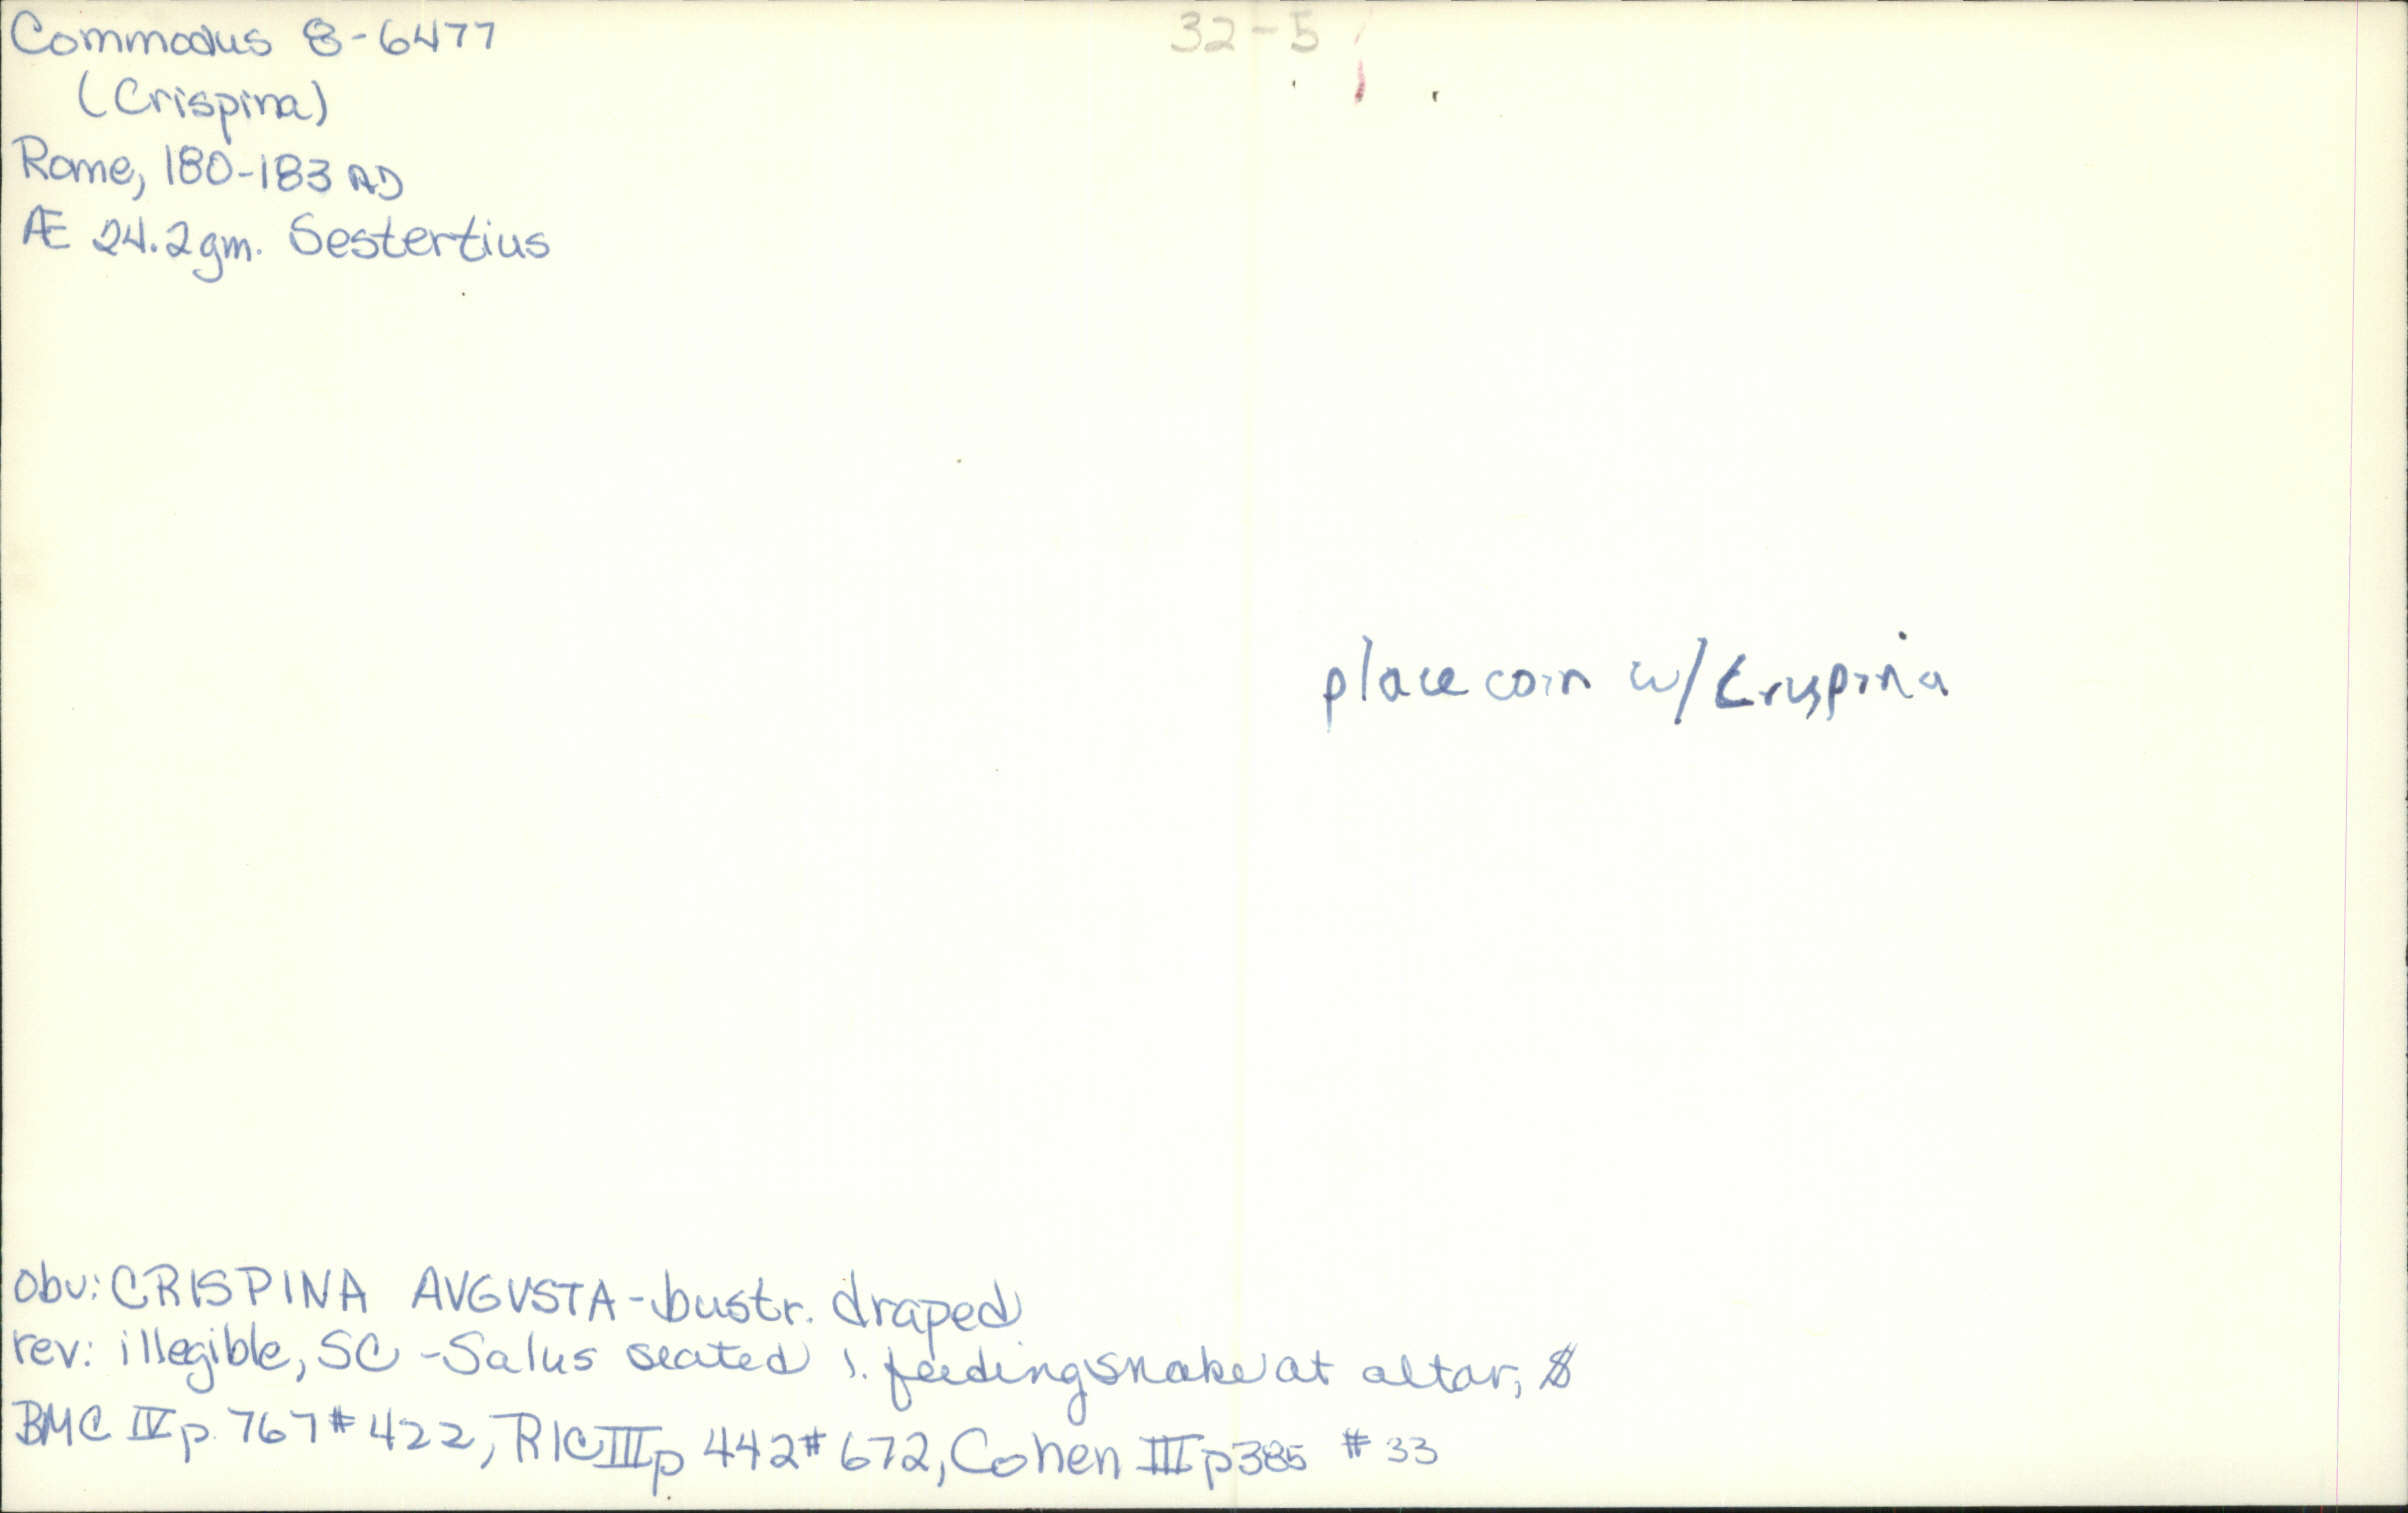 Commodus 8-6477
32-5
(Crispina)
Rome, 180-183 AD
Æ 24.2gm. Sestertius
place coin w/ Crispina
obv: CRISPINA AVGVSTA - bust r. draped
rev: illegible, SC - Salus seated l. feeding snake at altar,
BMC IV p. 767 # 422, RIC III p 442 # 672, Cohen III p 385 # 33